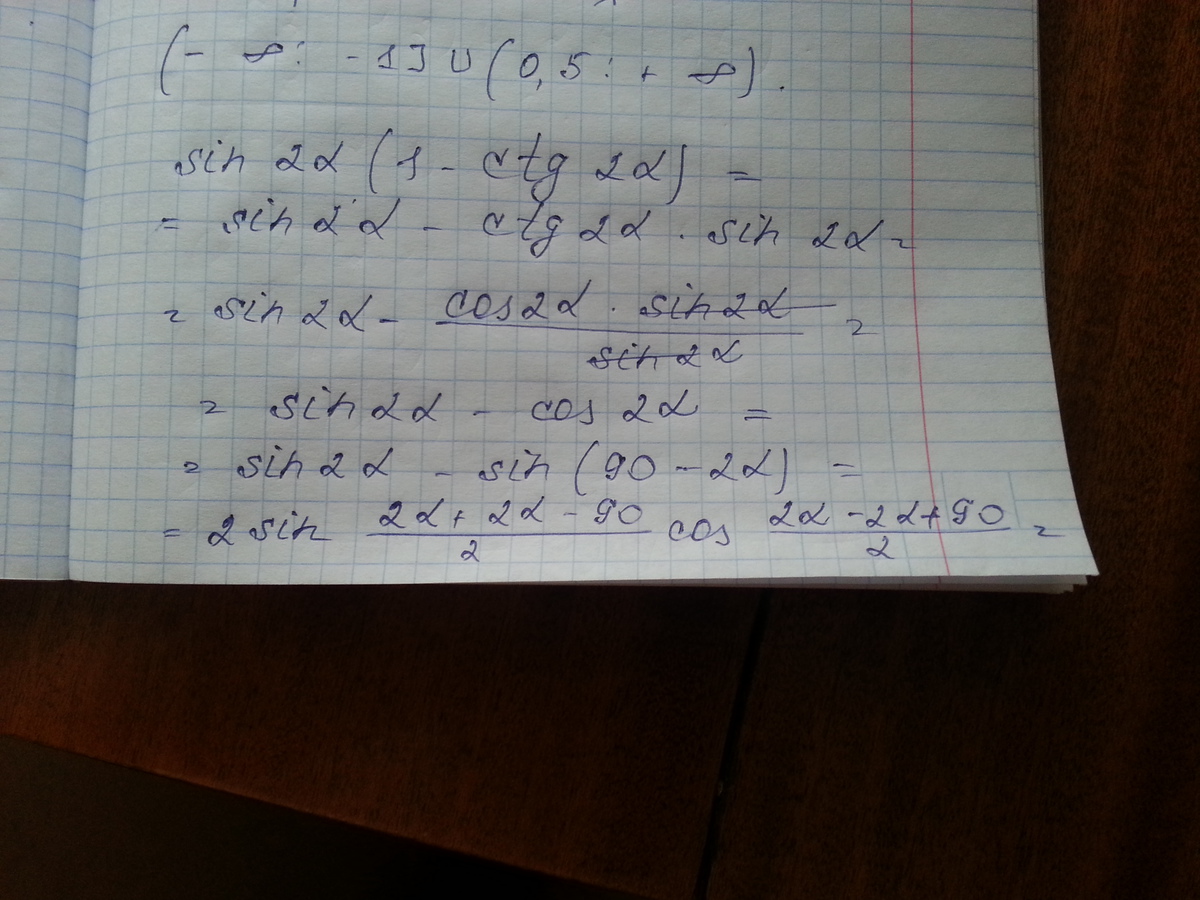 (- ∞; -1] ∪ (0,5; + ∞).
sin 2α (1 - ctg 2α) =
= sin 2α - ctg 2α · sin 2α =
= sin 2α - (cos 2α · sin 2α) / (sin 2α) =
= sin 2α - cos 2α =
= sin 2α - sin (90 - 2α) =
= 2 sin (2α + 2α - 90) / 2 cos (2α - 2α + 90) / 2 =